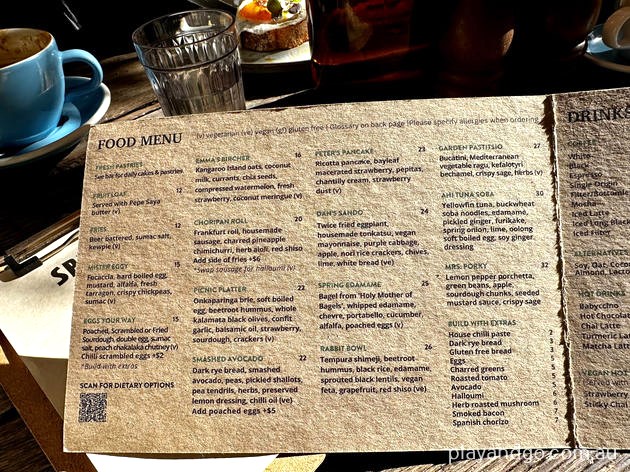 FOOD MENU
(v) vegetarian (ve) vegan (gf) gluten free | Glossary on back page | Please specify allergies when ordering
FRESH PASTRIES
See bar for daily cakes & pastries
FRUIT LOAF 12
Served with Pepe Saya
butter (v)
FRIES 12
Beer battered, sumac salt,
kewpie (v)
MISTER EGGY 15
Focaccia, hard boiled egg,
mustard, alfalfa, fresh
tarragon, crispy chickpeas,
sumac (v)
EGGS YOUR WAY 15
Poached, Scrambled or Fried
Sourdough, double egg, sumac
salt, peach chakalaka chutney (v)
Chilli scrambled eggs +$2
*Build with extras
SCAN FOR DIETARY OPTIONS
EMMA'S BIRCHER 16
Kangaroo Island oats, coconut
milk, currants, chia seeds,
compressed watermelon, fresh
strawberry, coconut meringue (v)
CHORIPAN ROLL 20
Frankfurt roll, housemade
sausage, charred pineapple
chimichurri, herb aioli, red shiso
Add side of fries +$6
*Swap sausage for halloumi (v)
PICNIC PLATTER 22
Onkaparinga brie, soft boiled
egg, beetroot hummus, whole
kalamata black olives, confit
garlic, balsamic oil, strawberry,
sourdough, crackers (v)
SMASHED AVOCADO 22
Dark rye bread, smashed
avocado, peas, pickled shallots,
pea tendrils, herbs, preserved
lemon dressing, chilli oil (ve)
Add poached eggs +$5
PETER'S PANCAKE 23
Ricotta pancake, bayleaf
macerated strawberry, pepitas,
chantilly cream, strawberry
dust (v)
DAN'S SANDO 24
Twice fried eggplant,
housemade tonkatsu, vegan
mayonnaise, purple cabbage,
apple, nori rice crackers, chives,
lime, white bread (ve)
SPRING EDAMAME 25
Bagel from 'Holy Mother of
Bagels', whipped edamame,
chevre, portabello, cucumber,
alfalfa, poached eggs (v)
RABBIT BOWL 26
Tempura shimeji, beetroot
hummus, black rice, edamame,
sprouted black lentils, vegan
feta, grapefruit, red shiso (ve)
GARDEN PASTITSIO 27
Bucatini, Mediterranean
vegetable ragu, kefalotyri
bechamel, crispy sage, herbs (v)
AHI TUNA SOBA 30
Yellowfin tuna, buckwheat
soba noodles, edamame,
pickled ginger, furikake,
spring onion, lime, oolong
soft boiled egg, soy ginger
dressing
MRS. PORKY 32
Lemon pepper porchetta,
green beans, apple,
sourdough chunks, seeded
mustard sauce, crispy sage
BUILD WITH EXTRAS
House chilli paste 2
Dark rye bread 3
Gluten free bread 3
Eggs
Charred greens 5
Roasted tomato 5
Avocado
Halloumi 6
Herb roasted mushroom 6
Smoked bacon 7
Spanish chorizo 7
DRINKS
COFFEE
White
Black
Espresso
Single Origin
Filter/Bottomless
Mocha
Iced Latte
Iced Long Black
Iced Filter
ALTERNATIVES
Soy, Oat, Coconut
Almond, Lacto
HOT DRINKS
Babyccino
Hot Chocolate
Chai Latte
Turmeric Latte
Matcha Latte
VEGAN HOT
Served with
Strawberry
Sticky Chai
playandgo.com.au